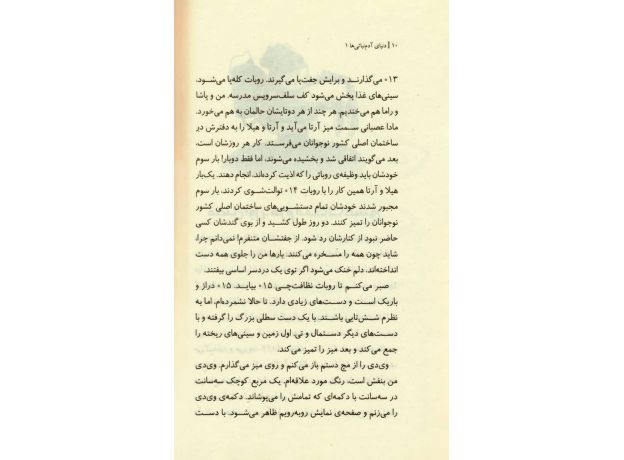 ۱۰ | دنیای آدم‌نباتی‌ها ۱
۰۱۳ می‌گذارنــد و برایش جفت‌پا می‌گیرند. روبات کله‌پا می‌شود،
سینی‌های غذا پخش می‌شود کف سلف‌سرویس مدرسه. من و پاشا
و راما هم می‌خندیم. هر چند از هر دوتایشان حالمان به هم می‌خورد.
مادا عصبانی ســمت میز آرتا می‌آید و آرتا و هیلا را به دفترش در
ساختمان اصلی کشور نوجوانان می‌فرســتد. کار هر روزشان است،
بعد می‌گویند اتفاقی شد و بخشیده می‌شوند، اما فقط دوبار! بار سوم
خودشان باید وظیفه‌ی روباتی را که اذیت کرده‌اند، انجام دهند. یک‌بار
هیلا و آرتا همین کار را با روبات ۰۱۴ توالت‌شــوی کردند، بار سوم
مجبور شدند خودشان تمام دستشویی‌های ساختمان اصلی کشور
نوجوانان را تمیز کنند. دو روز طول کشــید و از بوی گندشان کسی
حاضر نبود از کنارشان رد شود. از جفتشــان متنفرم! نمی‌دانم چرا،
شاید چون همه را مسخره می‌کنند. بارها من را جلوی همه دست
انداخته‌اند، دلم خنک می‌شود اگر توی یک دردسر اساسی بیفتند.
صبر می‌کنــم تا روبات نظافت‌چــی ۰۱۵ بیایــد. ۰۱۵ دراز و
باریک است و دست‌های زیادی دارد. تا حالا نشمرده‌ام، اما به
نظرم شش‌تایی باشــند. با یک دست سطلی بزرگ را گرفته و با
دست‌های دیگر دستمال و تی. اول زمین و سینی‌های ریخته را
جمع می‌کند و بعد میز را تمیز می‌کند.
وی‌دی را از مچ دستم باز می‌کنم و روی میز می‌گذارم. وی‌دی
من بنفش است، رنگ مورد علاقه‌ام. یک مربع کوچک سه‌سانت
در سه‌سانت با دکمه‌ای که تمامش را می‌پوشاند. دکمه‌ی وی‌دی
را می‌زنم و صفحه‌ی نمایش روبه‌رویم ظاهر می‌شــود. با دســت